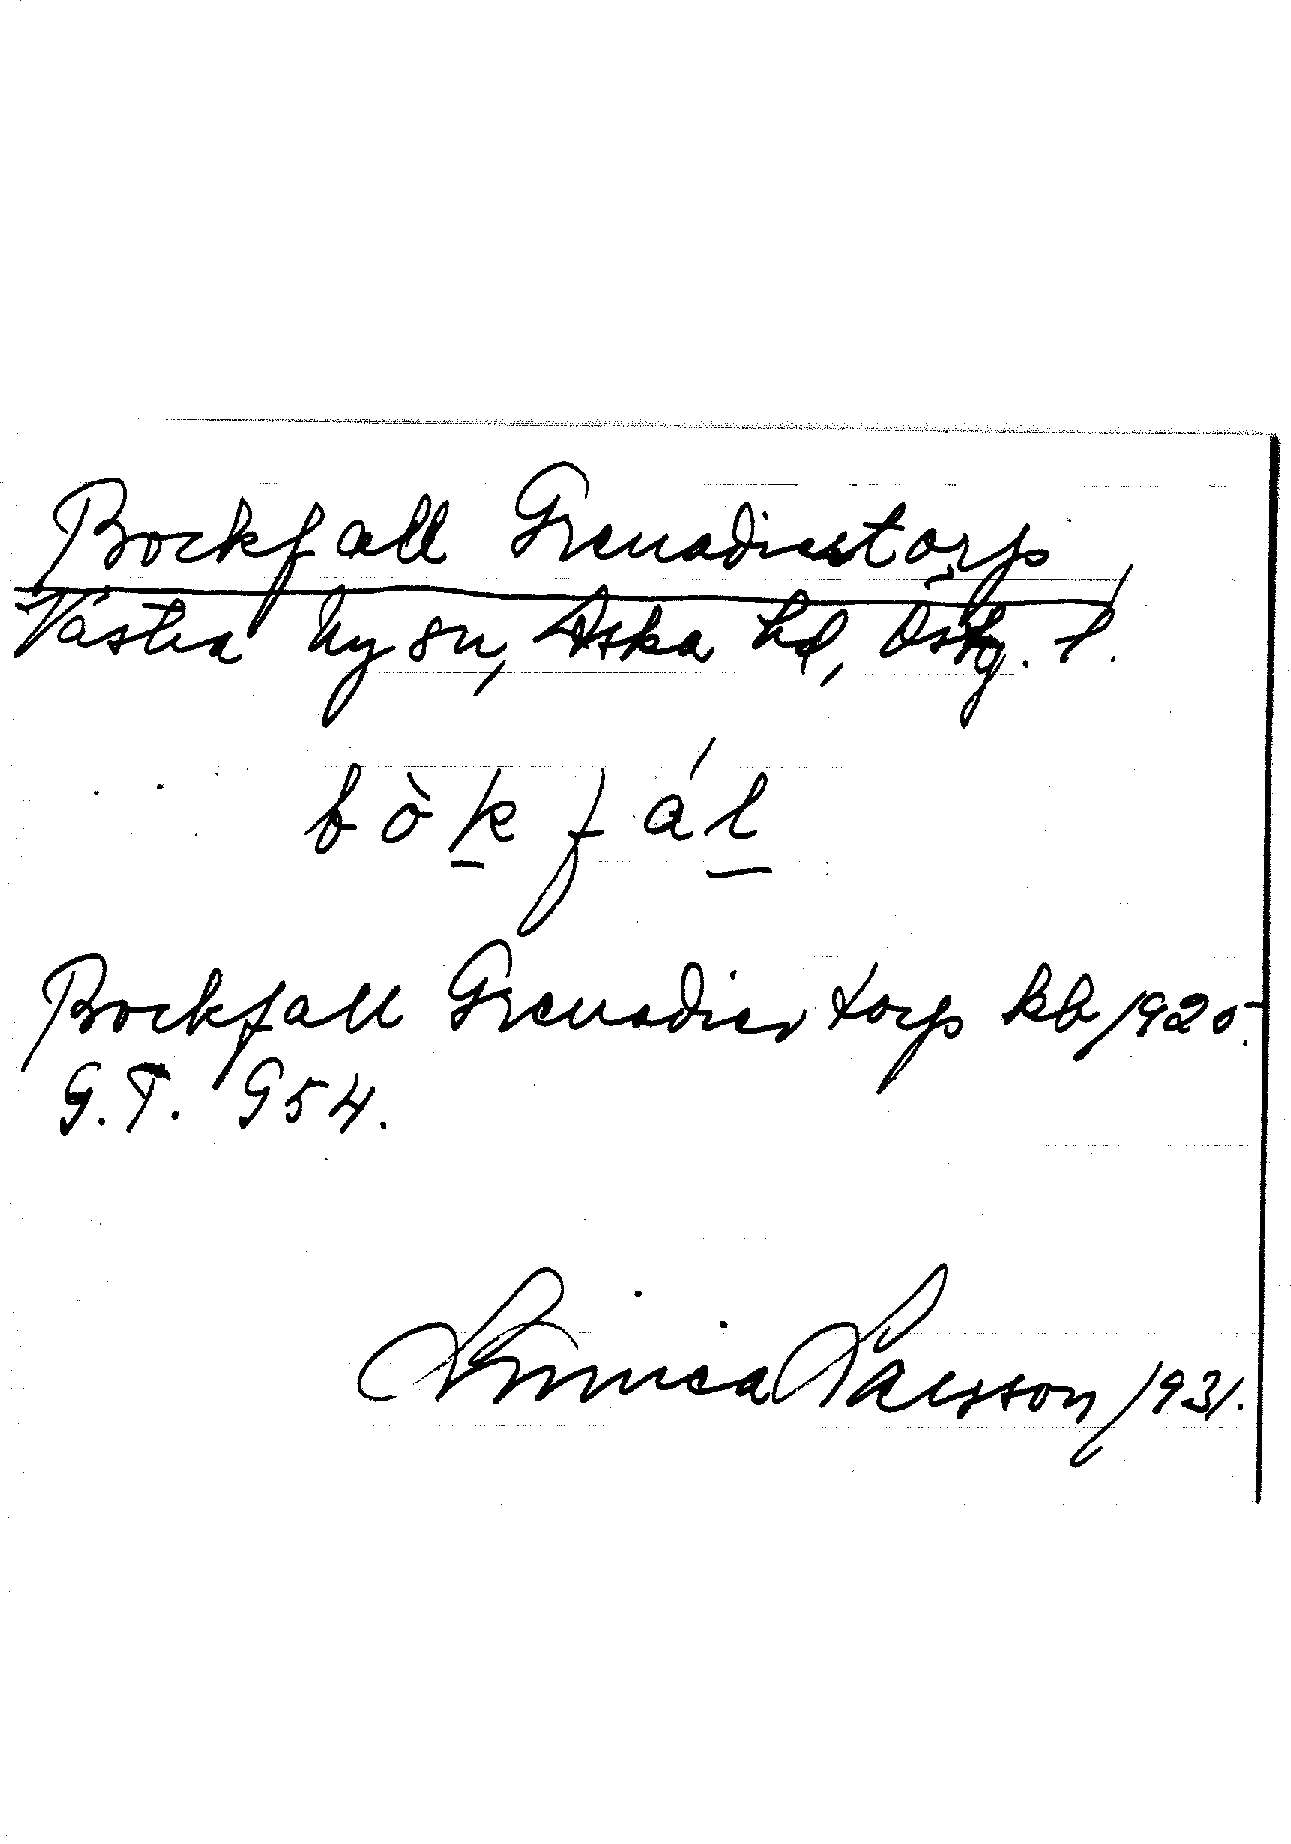 Bockfall Grenadierstorp
Västra Ny sn, Aska hd, Östg. l.
bòk fál
Bockfall Grenadier torp kb 1925.
G.T. 954.
Larsson 1931.